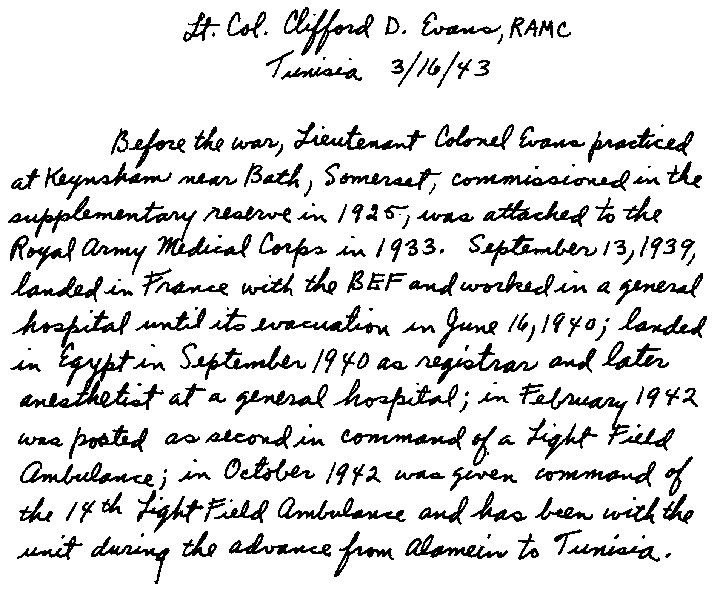 Lt. Col. Clifford D. Evans, RAMC
Tunisia 3/16/43
Before the war, Lieutenant Colonel Evans practiced
at Keynsham near Bath, Somerset, commissioned in the
supplementary reserve in 1925, was attached to the
Royal Army Medical Corps in 1933. September 13, 1939,
landed in France with the BEF and worked in a general
hospital until its evacuation in June 16, 1940; landed
in Egypt in September 1940 as registrar and later
anesthetist at a general hospital; in February 1942
was posted as second in command of a Light Field
Ambulance; in October 1942 was given command of
the 14th Light Field Ambulance and has been with the
unit during the advance from Alamein to Tunisia.